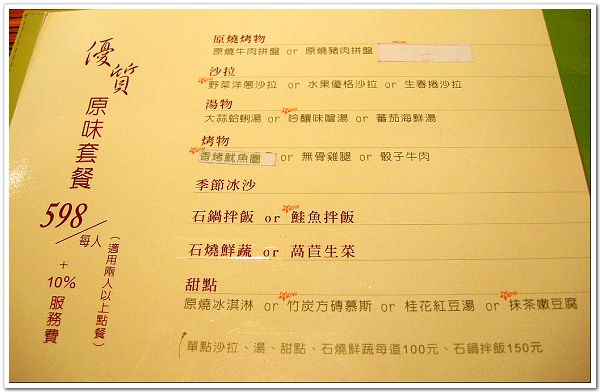 優質
原味套餐
598
每人
(適用兩人以上點餐)
+
10%
服務費
原燒烤物
原燒牛肉拼盤 or 原燒豬肉拼盤
沙拉
野菜洋蔥沙拉 or 水果優格沙拉 or 生春捲沙拉
湯物
大蒜蛤蜊湯 or 吟釀味噌湯 or 蕃茄海鮮湯
烤物
香烤魷魚圈 or 無骨雞腿 or 骰子牛肉
季節冰沙
石鍋拌飯 or 鮭魚拌飯
石燒鮮蔬 or 萵苣生菜
甜點
原燒冰淇淋 or 竹炭方磚慕斯 or 桂花紅豆湯 or 抹茶嫩豆腐
單點沙拉、湯、甜點、石燒鮮蔬每道100元、石鍋拌飯150元